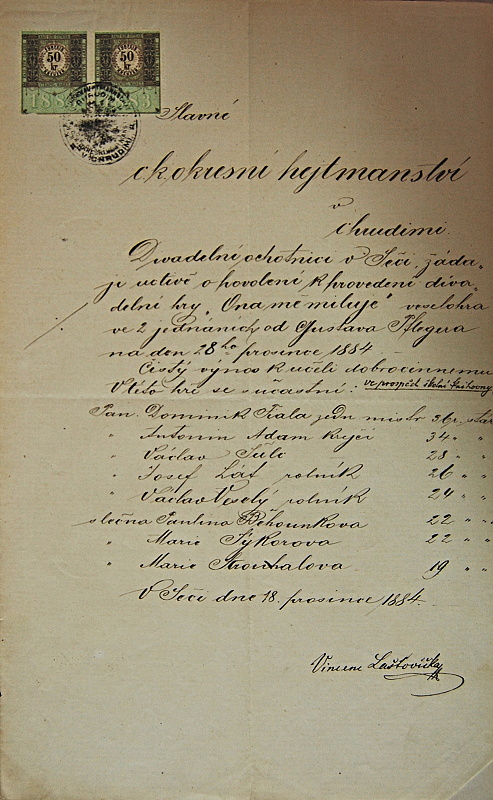 50 kr 50 kr
188 83
Slavné
c.k. okresní hejtmanství
v
Chrudimi.
Divadelní ochotnici v Seči žáda„
je uctivě o povolení k provedení diva„
delní hry „Ona mě miluje“ veselohra
ve 2 jednáních od Gustava Pflegera
na den 28ho prosince 1884
Čistý výnos k účeli dobročinnemu
ve prospěch školní knihovny
V této hře se súčastní:
Pan. Dominik Fiala mistr 36 r. stár
„ Antonin Adam krejčí 34 „ „
„ Václav Šulc 28 „ „
„ Josef Lát rolník 26 „ „
„ Václav Veselý rolník 24 „ „
slečna Paulina Běhounkova 22 „ „
„ Marie Sýkorova 22 „ „
„ Marie Strouhalova 19 „ „
V Seči dne 18. prosince 1884.
Vincenc Laštovička